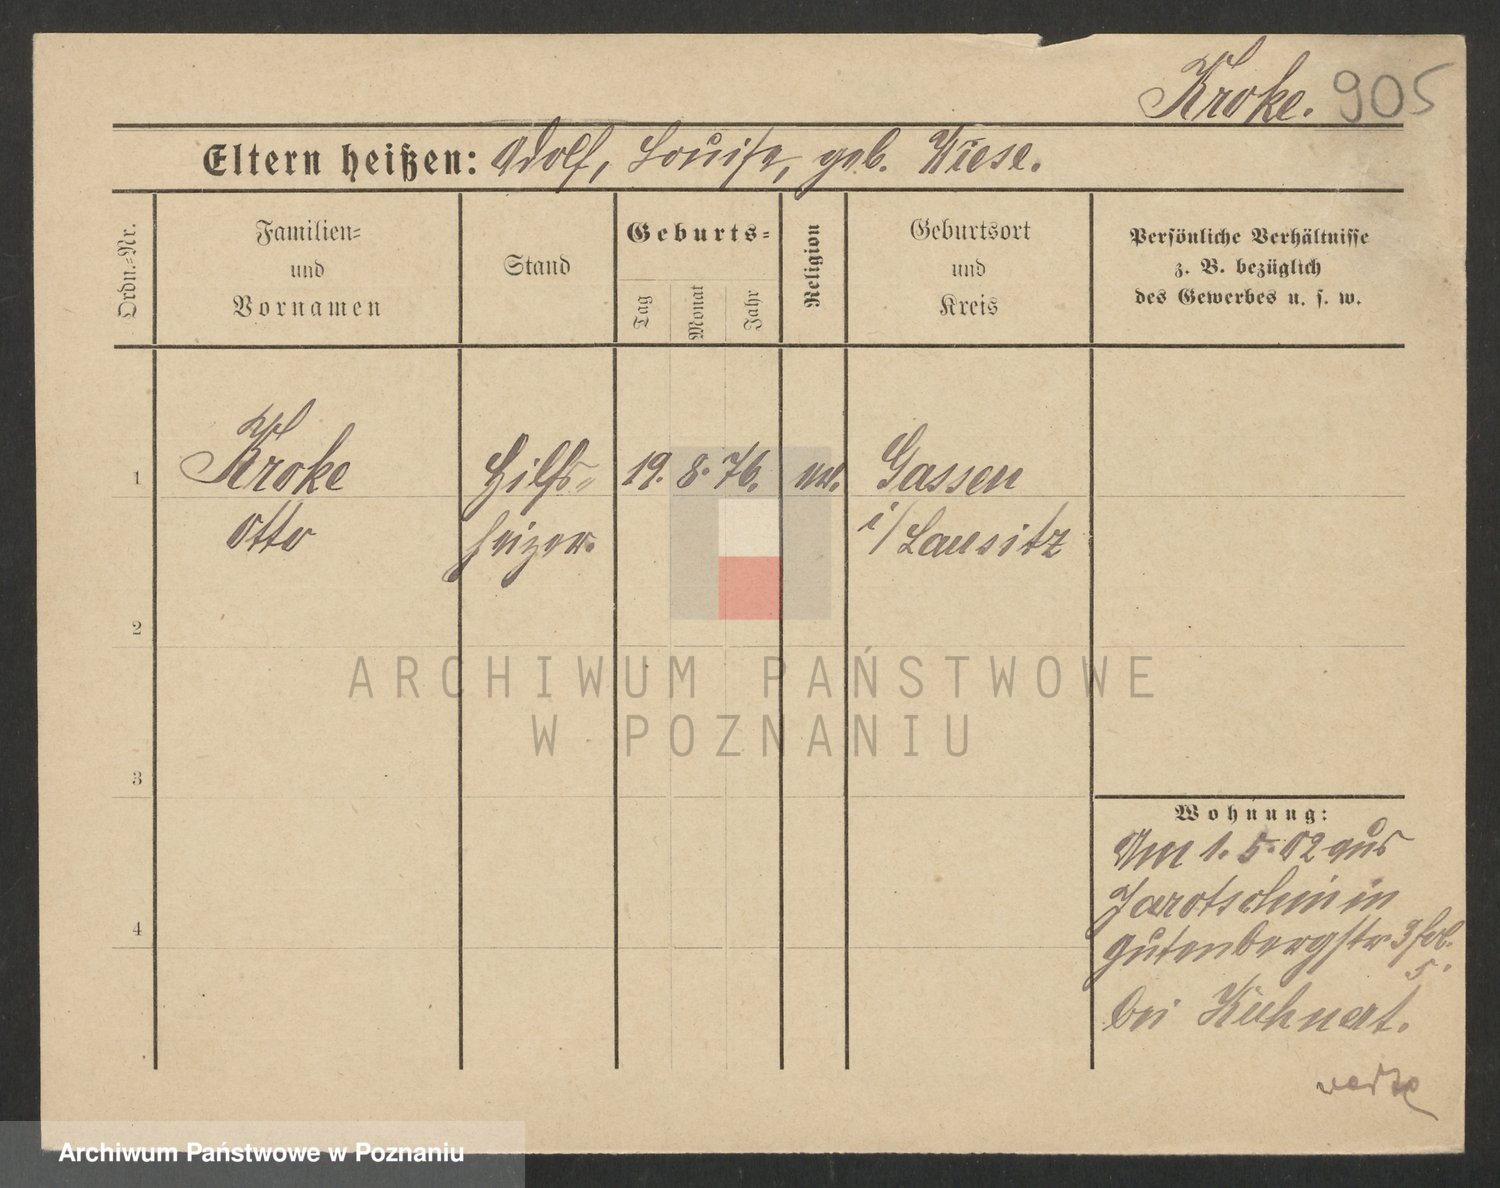 Kroke. 905
Eltern heißen: Adolf, Louise, geb. Wiese.
Ordn.=Nr.
Familien=
und
Vornamen
Stand
Geburts=
Tag
Monat
Jahr
Religion
Geburtsort
und
Kreis
Persönliche Verhältnisse
z. B. bezüglich
des Gewerbes u. s. w.
1 Kroke Hilfs= 19. 8. 76. ev. Gassen
Otto heizer. i/ Lausitz
2
3
4
Wohnung:
Am 1. 5. 02 aus
Jarotschin in
Gutenbergstr 3
5.
bei Kuhnert.
ARCHIWUM PAŃSTWOWE
W POZNANIU
Archiwum Państwowe w Poznaniu